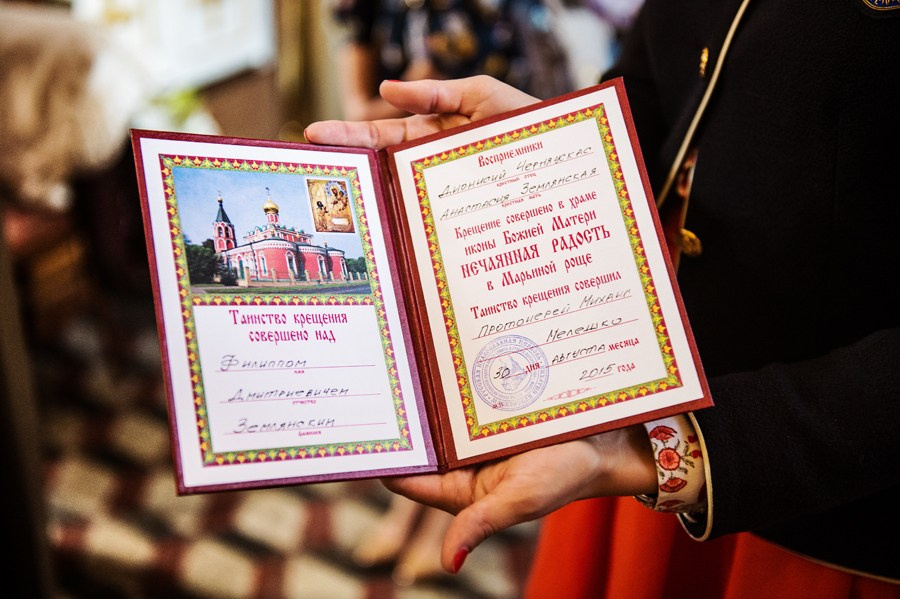 Таинство крещения
совершено над
Филиппом
имя
Дмитриевичем
отчество
Землянским
фамилия
Восприемники
Дионисий Черняускас
крестный отец
Анастасия Землянская
крестная мать
Крещение совершено в храме
иконы Божией Матери
НЕЧАЯННАЯ РАДОСТЬ
в Марьиной роще
Таинство крещения совершил
Протоиерей Михаил
Мелешко
30 дня августа месяца
2015 года